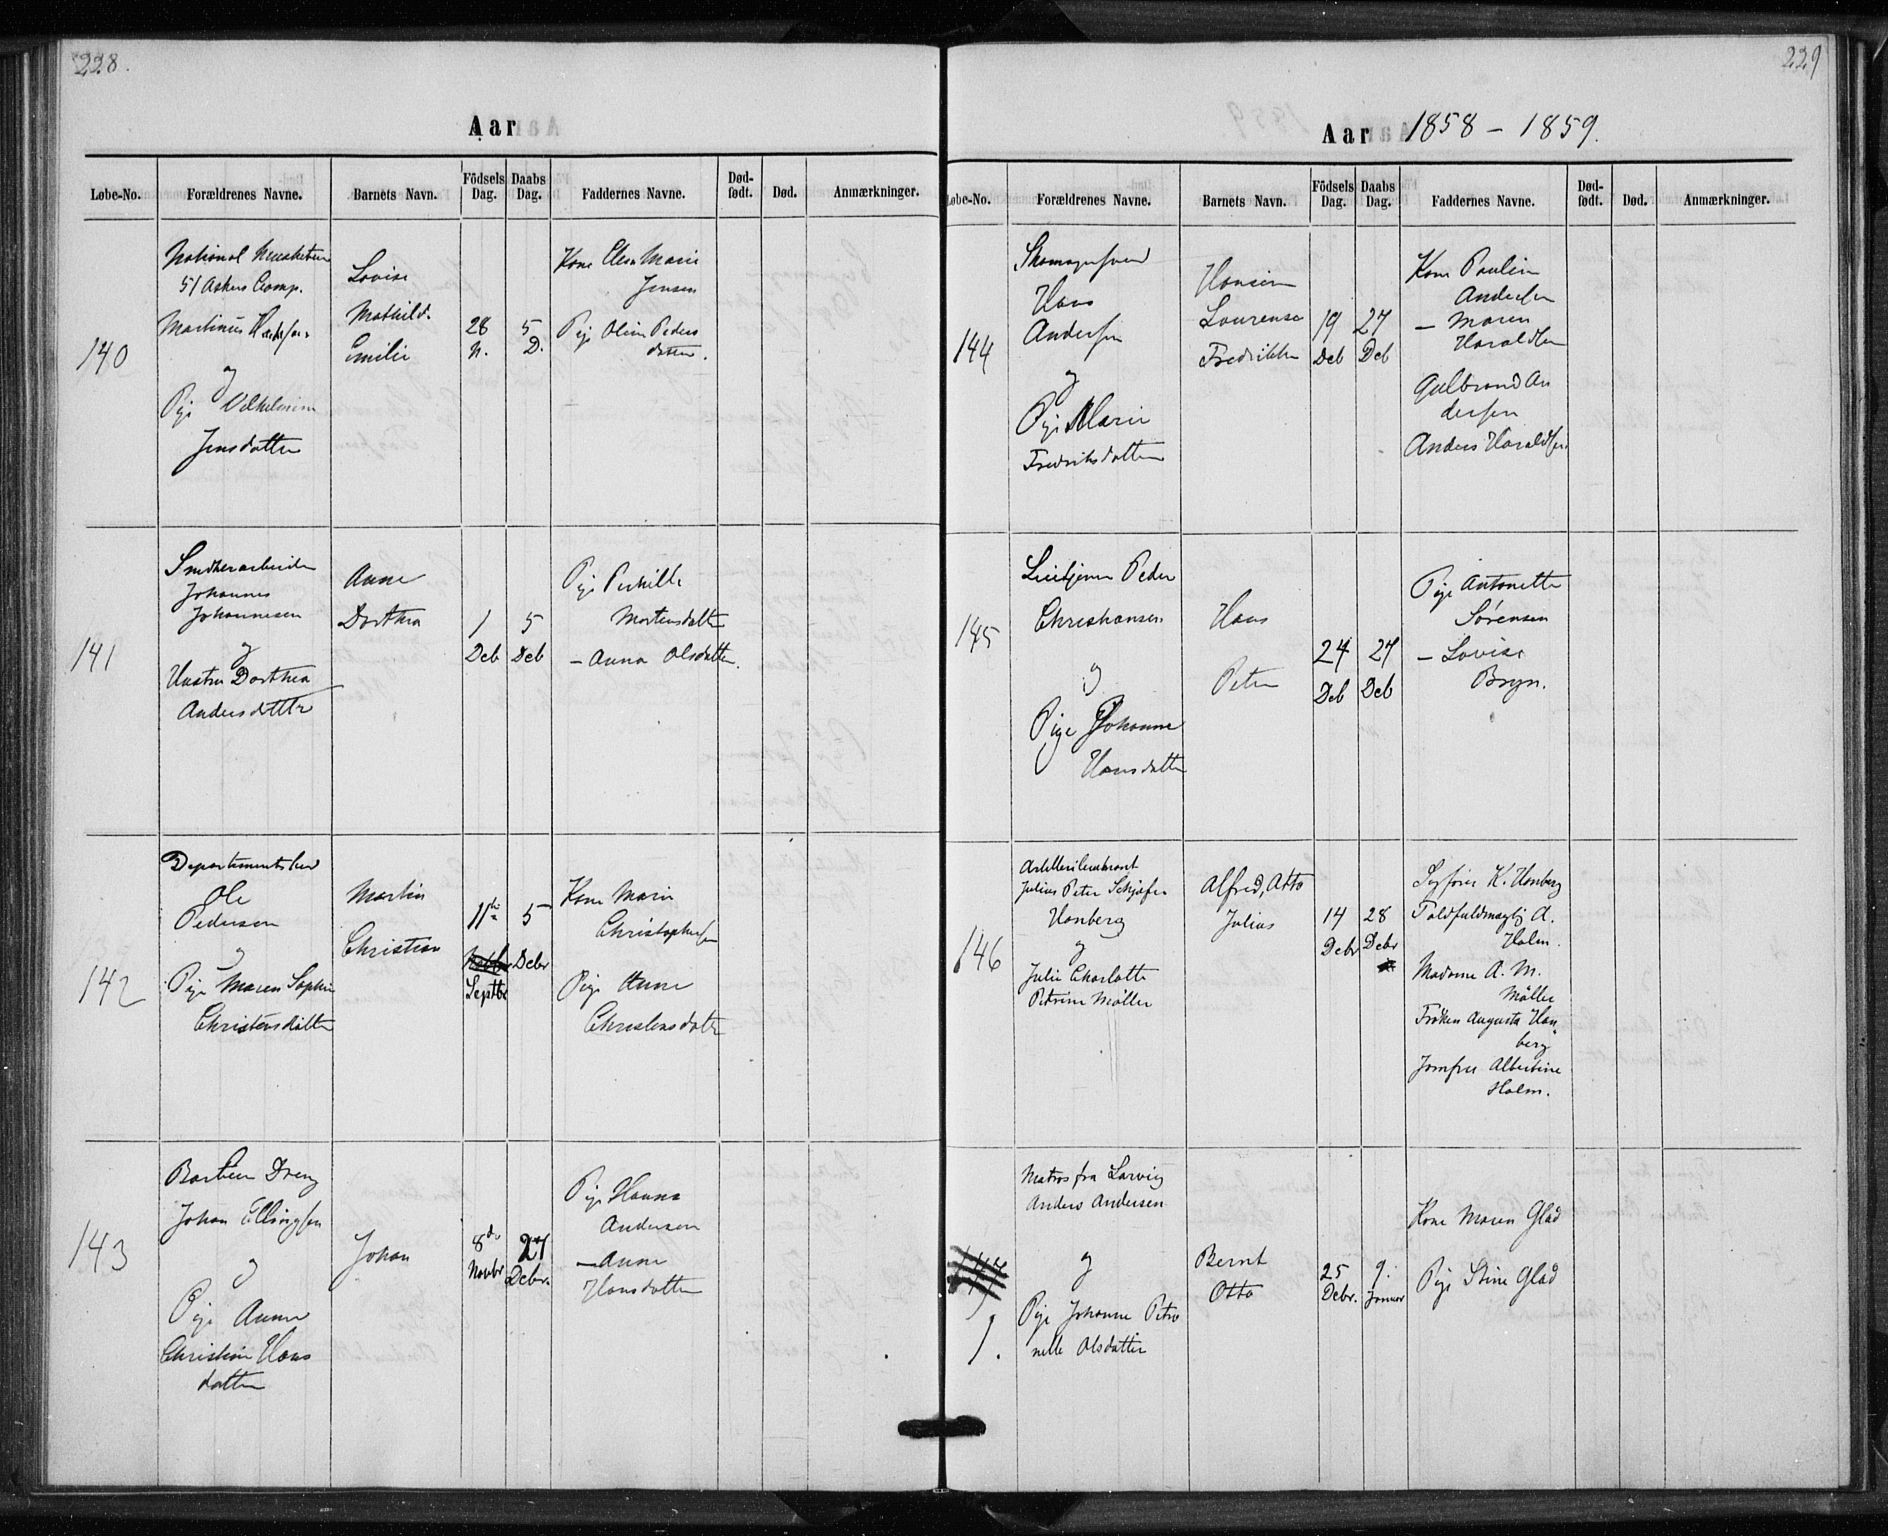 228.
Aar
Løbe-No. Forældrenes Navne. Barnets Navn. Födsels Dag. Daabs Dag. Faddernes Navne. Död-födt. Död. Anmærkninger.
140
National
51 Askers Comp.
Martinus
g
Pige Vilhelmine
Jensdatter
Lovise
Mathilde
Emilie
28
N.
5
D.
Kone Elen Marie
Jensen
Pige Oline Peders
datter.
141
Johannes
Johannesen
g
Hustru Dorthea
Andersdatter
Anne
Dorthea
1
Deb
5
Deb
Pige Pernille
Mortensdatter
– Anna Olsdatter.
142
Departementsbud
Ole
Pedersen
g
Pige Maren Sophie
Christensdatter
Martin
Christian
11te
Septbr
5
Debr
Kone Marie
Christophersen
Pige Anne
Christensdatter
143
Barbeer Dreng
Johan Ellingsen
g
Pige Anne
Christine Hans
datter
Johan
8de
Novbr
27
Debr.
Pige Hanna
Andersen
– Anne
Hansdatter
229
Aar 1858 – 1859.
Løbe-No. Forældrenes Navne. Barnets Navn. Födsels Dag. Daabs Dag. Faddernes Navne. Död-födt. Död. Anmærkninger.
144
Skomagersvend
Hans
Andersen
g
Pige Marie
Fredriksdatter
Hansine
Laurense
Fredrikke
19
Deb
27
Deb
Kone Pauline
Andersen
– Maren
Haraldsen
Gulbrand An
dersen
Anders Haraldsen
145
Peder
Christiansen
g
Pige Johanne
Hansdatter
Hans
Peter
24
Deb
27
Deb
Pige Antonette
Sørensen
– Lovise
Bryn.
146
Julius Peter
Hanberg
g
Julie Charlotte
Petrine Møller
Alfred, Otto
Julius
14
Debr
28
Debr
K. Hanberg
Toldfuldmægtig A.
Holm.
Madame A. M.
Møller
Frøken Augusta Han
berg
Jomfru Albertine
Holm.
147
1.
Matros fra Larvig
Anders Andersen
g
Pige Johanne Petro
nelle Olsdatter
Bernt
Otto
25
Debr.
9.
Januar
Kone Maren Glad
Pige Stine Glad